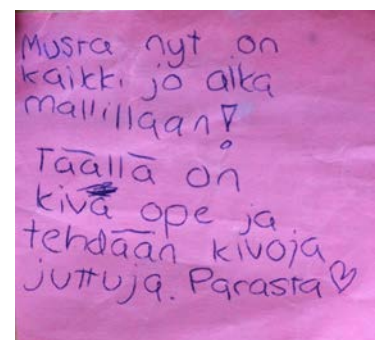 Musta nyt on
kaikki jo aika
mallillaan!
Täällä on
kiva ope ja
tehdään kivoja
juttuja. Parasta ♡